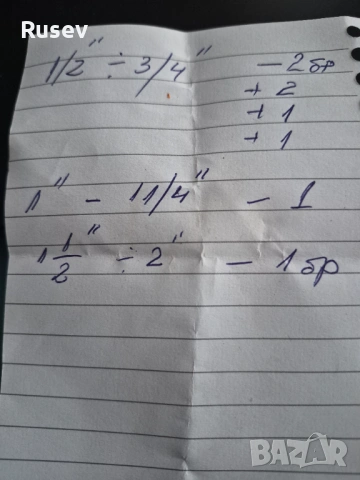 Rusev
1/2" ÷ 3/4" - 2бр
+ 2
+ 1
+ 1
1" - 1 1/4" - 1
1 1/2" ÷ 2" - 1бр
BAZAR